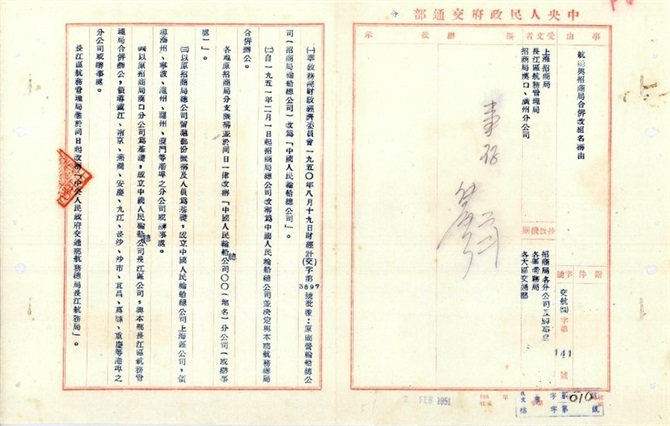 中央人民政府交通部
事由
航總與招商局合併改組名稱由
受文者
上海招商局
長江區航務管理局
招商局漢口、廣州分公司
批示
抄致機關
招商局各分公司及辦事處
各區港務局
各大區交通部
附件
字號
交航 字第 141 號
010
2 FEB 1951
㈠奉政務院財政經濟委員會一九五〇年八月十九日財經計(交)字第3697號批示:原國營輪船總公
司(招商局輪船總公司)改爲「中國人民輪船總公司」。
㈡自一九五一年二月一日起招商局總公司改稱爲中國人民輪船總公司並決定與本部航務總局
合併辦公。
各地原招商局分支機構並於同日一律改稱「中國人民輪船總公司〇〇(地名)分公司(或辦事
處)」。
㈢以原招商局總公司留滬部份機構及人員爲基礎,成立中國人民輪船總公司上海區公司,領
導廣州、寧波、溫州、福州、廈門等港埠之分公司或辦事處。
㈣以原招商局漢口分公司爲基礎,成立中國人民輪船總公司長江區公司,與本部長江區航務管
理局合併辦公,領導鎮江、南京、蕪湖、安慶、九江、長沙、沙市、宜昌、萬縣、重慶等港埠之
分公司或辦事處。
長江區航務管理局並於同日起改稱「中央人民政府交通部航務總局長江航務局」。